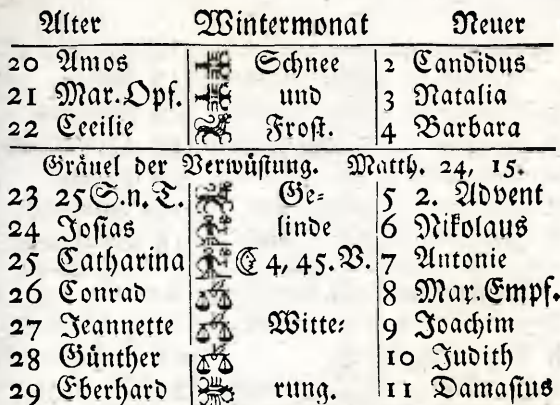 Alter Wintermonat Neuer
20 Amos Schnee 2 Candidus
21 Mar. Opf. und 3 Natalia
22 Cecilie Frost. 4 Barbara
Gräuel der Verwüstung. Matth. 24, 15.
23 25 S. n. T. Ge= 5 2. Advent
24 Josias linde 6 Nikolaus
25 Catharina ☾ 4, 45. V. 7 Antonie
26 Conrad 8 Mar. Empf.
27 Jeannette Witte: 9 Joachim
28 Günther 10 Judith
29 Eberhard rung. 11 Damasius